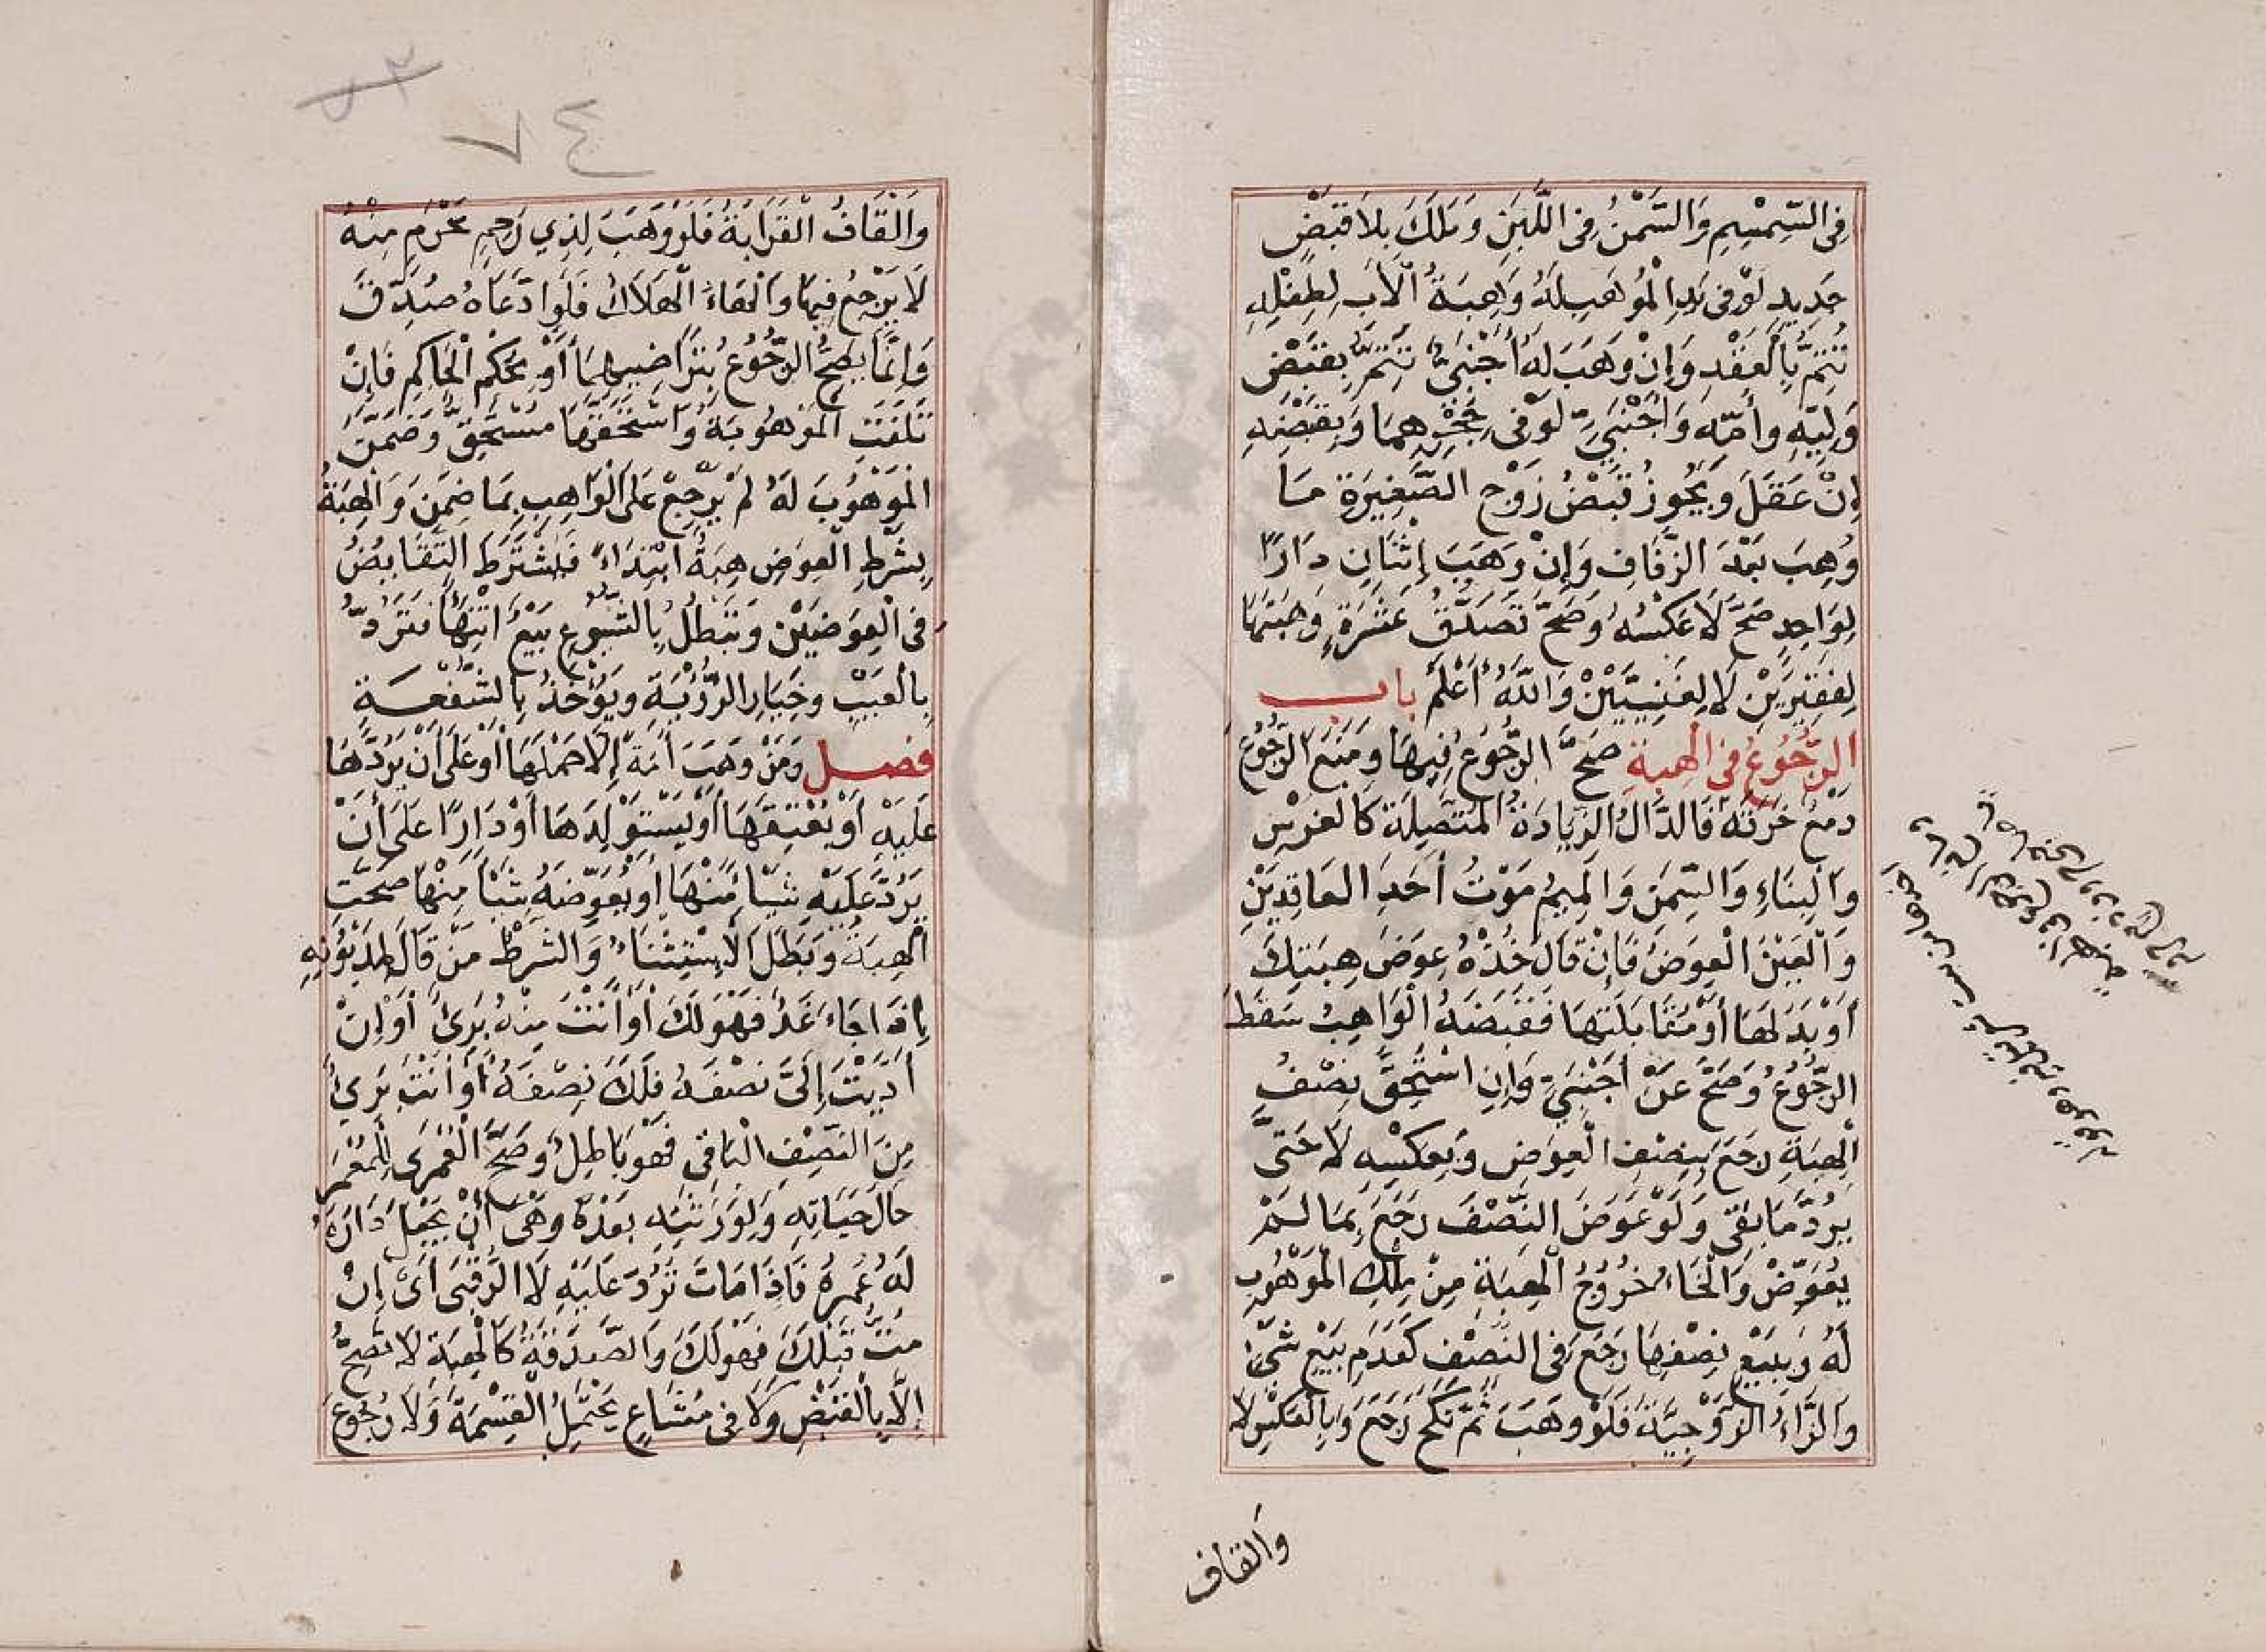 فِى السِّمْسِمِ وَالسَّمْنُ فِى اللَّبَنِ وَمَلَكَ بِلَا قَبْضٍ
جَدِيدٍ لَوْ فِى يَدِ الْمُوْهَبِ لَهُ وَهِبَةُ الْأَبِ لِطِفْلِهِ
تَتِمُّ بِالْعَقْدِ وَإِنْ وَهَبَ لَهُ أَجْنَبِيٌّ تَتِمُّ بِقَبْضِ
وَلِيِّهِ وَأُمِّهِ وَأَجْنَبِيٍّ لَوْ فِى حِجْرِهِمَا وَبِقَبْضِهِ
إِنْ عَقَلَ وَيَجُوزُ قَبْضُ زَوْجِ الصَّغِيرَةِ مَا
وُهِبَ بَعْدَ الزَّفَافِ وَإِنْ وَهَبَ إِثْنَانِ دَارًا
لِوَاحِدٍ صَحَّ لَا عَكْسُهُ وَصَحَّ تَصَدُّقُ عَشَرَةٍ وَهِبَتُهَا
لِفَقِيرَيْنِ لَا لِغَنِيَّيْنِ وَاللَّهُ أَعْلَمُ بَاب
الرُّجُوْعُ فِى الْهِبَةِ صَحَّ الرُّجُوعُ فِيهَا وَمَنَعَ الرُّجُوْعَ
دَمْعُ خَزَقَهْ فَالدَّالُ الزِّيَادَةُ الْمُتَّصِلَةُ كَالْغَرْسِ
وَالْبِنَاءِ وَالسِّمَنِ وَالْمِيمُ مَوْتُ أَحَدِ الْعَاقِدَيْنِ
وَالْعَيْنُ الْعِوَضُ فَإِنْ قَالَ خُذْهُ عِوَضَ هِبَتِكَ
أَوْ بَدَلَهَا أَوْ مُقَابَلَتَهَا فَقَبَضَهُ الْوَاهِبُ سَقَطَ
الرُّجُوْعُ وَصَحَّ عَنْ أَجْنَبِيٍّ وَإِنِ اسْتُحِقَّ نِصْفُ
الْهِبَةِ رَجَعَ بِنِصْفِ الْعِوَضِ وَبِعَكْسِهِ لَا حَتَّى
يَرُدَّ مَا بَقِىَ وَلَوْ عَوَضَ النِّصْفَ رَجَعَ بِمَا لَمْ
يُعَوِّضْ وَالْخَاءُ خُرُوْجُ الْهِبَةِ مِنْ مِلْكِ الْمَوْهُوْبِ
لَهُ وَبِبَيْعِ نِصْفِهَا رَجَعَ فِى النِّصْفِ كَعَدَمِ بَيْعِ شَىْءٍ
وَالزَّاءُ الزَّوْجِيَّةُ فَلَوْ وَهَبَ ثُمَّ نَكَحَ رَجَعَ وَبِالْعَكْسِ لَا
وَالقاف
٧٤
وَالْقَافُ الْقَرَابَةُ فَلَوْ وَهَبَ لِذِي رَحِمٍ مَحْرَمٍ مِنْهُ
لَا يَرْجِعُ فِيهَا وَالْهَاءُ الْهَلَاكُ فَلَوِ ادَّعَاهُ صُدِّقَ
وَإِنَّمَا يَصِحُّ الرُّجُوْعُ بِتَرَاضِيهِمَا أَوْ بِحُكْمِ الْحَاكِمِ فَإِنْ
تَلِفَتِ الْمَوْهُوبَةُ وَاسْتَحَقَّهَا مُسْتَحِقٌّ وَضَمَّنَ
الْمَوْهُوْبَ لَهُ لَمْ يَرْجِعْ عَلَى الْوَاهِبِ بِمَا ضَمِنَ وَالْهِبَةُ
بِشَرْطِ الْعِوَضِ هِبَةُ ابْتِدَاءً فَيُشْتَرَطُ التَّقَابُضُ
فِى الْعِوَضَيْنِ وَتَبْطُلُ بِالشُّيُوْعِ بَيْعٌ انْتِهَاءً فَتُرَدُّ
بِالْعَيْبِ وَخِيَارِ الرُّؤْيَةِ وَيُؤْخَذُ بِالشُّفْعَةِ
فصل وَمَنْ وَهَبَ أَمَةً إِلَّا حَمْلَهَا أَوْ عَلَى أَنْ يَرُدَّهَا
عَلَيْهِ أَوْ يُعْتِقَهَا أَوْ يَسْتَوْلِدَهَا أَوْ دَارًا عَلَى أَنْ
يَرُدَّ عَلَيْهِ شَيْئًا مِنْهَا أَوْ يُعَوِّضَهُ شَيْئًا مِنْهَا صَحَّتِ
الْهِبَةُ وَبَطَلَ الْاِسْتِثْنَاءُ وَالشَّرْطُ مَنْ قَالَ لِمَدْيُوْنِهِ
إِذَا جَاءَ غَدٌ فَهُوَ لَكَ أَوْ أَنْتَ مِنْهُ بَرِىءٌ أَوْ إِنْ
أَدَّيْتَ إِلَيَّ نِصْفَهُ فَلَكَ نِصْفُهُ أَوْ أَنْتَ بَرِىءٌ
مِنَ النِّصْفِ الْبَاقِى فَهُوَ بَاطِلٌ وَصَحَّ الْعُمْرَى لِلْمُعْمَرِ
حَالَ حَيَاتِهِ وَلِوَرَثَتِهِ بَعْدَهُ وَهْىَ أَنْ يَجْعَلَ دَارَهُ
لَهُ عُمْرَهُ فَإِذَا مَاتَ تُرَدُّ عَلَيْهِ لَا الرُّقْبَى أَىْ إِنْ
مِتُّ قَبْلَكَ فَهُوَ لَكَ وَالصَّدَقَةُ كَالْهِبَةِ لَا تَصِحُّ
إِلَّا بِالْقَبْضِ وَلَا فِى مُشَاعٍ يَحْتَمِلُ الْقِسْمَةَ وَلَا رُجُوْعَ